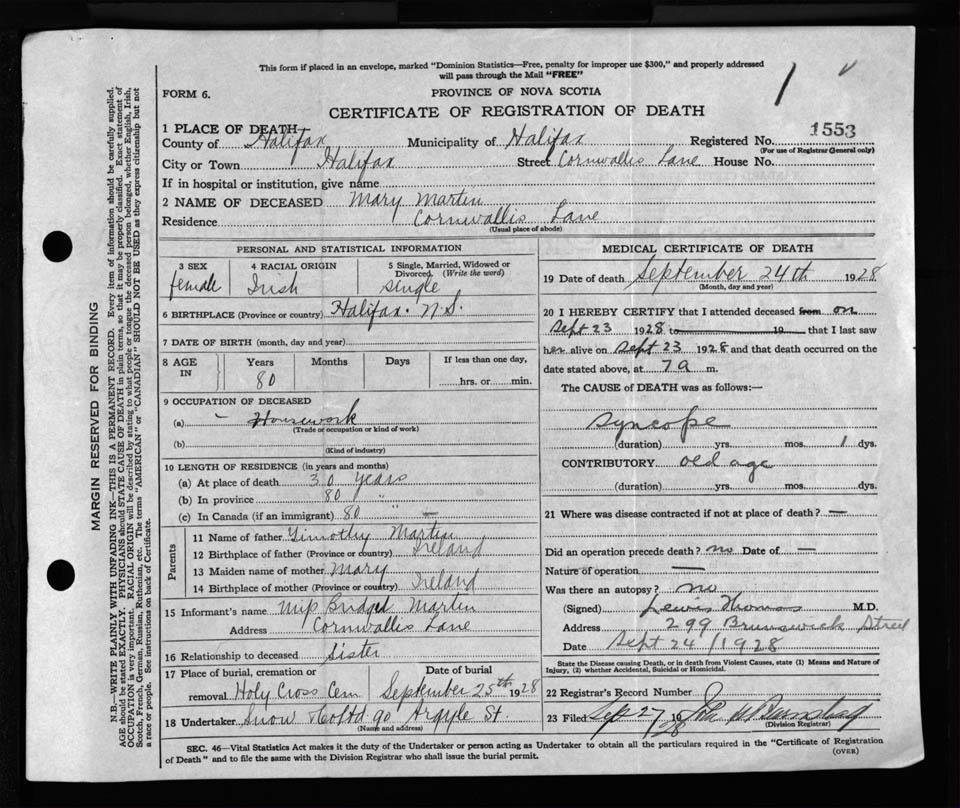 This form if placed in an envelope, marked "Dominion Statistics—Free, penalty for improper use $300," and properly addressed
will pass through the Mail "FREE"
1
FORM 6.
PROVINCE OF NOVA SCOTIA
CERTIFICATE OF REGISTRATION OF DEATH
1 PLACE OF DEATH—
1553
County of Halifax Municipality of Halifax Registered No.
(For use of Registrar General only)
City or Town Halifax Street Cornwallis Lane House No.
If in hospital or institution, give name
2 NAME OF DECEASED Mary Martin
Residence Cornwallis Lane
(Usual place of abode)
PERSONAL AND STATISTICAL INFORMATION
3 SEX 4 RACIAL ORIGIN 5 Single, Married, Widowed or
Divorced. (Write the word)
female Irish single
6 BIRTHPLACE (Province or country) Halifax. N.S.
7 DATE OF BIRTH (month, day and year)
8 AGE IN Years Months Days If less than one day,
80 hrs. or min.
9 OCCUPATION OF DECEASED
(a) – Housework
(Trade or occupation or kind of work)
(b)
(Kind of industry)
10 LENGTH OF RESIDENCE (in years and months)
(a) At place of death 30 years
(b) In province 80 "
(c) In Canada (if an immigrant) 80 —
Parents
11 Name of father Timothy Martin
12 Birthplace of father (Province or country) Ireland
13 Maiden name of mother Mary
14 Birthplace of mother (Province or country) Ireland
15 Informant's name Miss Bridget Martin
Address Cornwallis Lane
16 Relationship to deceased Sister
17 Place of burial, cremation or Date of burial
removal Holy Cross Cem September 25th 1928
18 Undertaker Snow & Co Ltd 90 Argyle St.
(Name and address)
MEDICAL CERTIFICATE OF DEATH
19 Date of death September 24th 1928
(Month, day and year)
20 I HEREBY CERTIFY that I attended deceased from on
Sept 23 1928 to 19 that I last saw
her alive on Sept 23 1928 and that death occurred on the
date stated above, at 7 a m.
The CAUSE of DEATH was as follows:—
Syncope
(duration) yrs. mos. 1 dys.
CONTRIBUTORY old age
(duration) yrs. mos. dys.
21 Where was disease contracted if not at place of death? —
Did an operation precede death? no Date of —
Nature of operation —
Was there an autopsy? no
(Signed) Lewis Thomas M.D.
Address 299 Brunswick Street
Date Sept 24/1928
State the Disease causing Death, or in death from Violent Causes, state (1) Means and Nature of
Injury, (2) whether Accidental, Suicidal or Homicidal.
22 Registrar's Record Number
23 Filed Sep 27 1928
(Division Registrar)
SEC. 46—Vital Statistics Act makes it the duty of the Undertaker or person acting as Undertaker to obtain all the particulars required in the "Certificate of Registration
of Death" and to file the same with the Division Registrar who shall issue the burial permit.
(OVER)
MARGIN RESERVED FOR BINDING
N.B.—WRITE PLAINLY WITH UNFADING INK—THIS IS A PERMANENT RECORD. Every item of information should be carefully supplied.
AGE should be stated EXACTLY. PHYSICIANS should STATE CAUSE OF DEATH in plain terms, so that it may be properly classified. Exact statement of
OCCUPATION is very important. RACIAL ORIGIN will be described by stating to what people or tongue the deceased person belonged, whether English, Irish,
Scotch, French, German, Russian, Ruthenian, etc. The terms "AMERICAN" or "CANADIAN" SHOULD NOT BE USED as they express citizenship but not
a race or people. See instructions on back of Certificate.